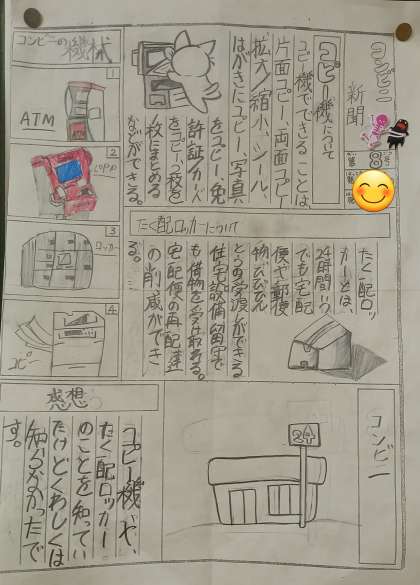 コンビニ
新聞
第8号
コピー機について
コピー機でできることは、
片面コピー、両面コピー
拡大/縮小、シール、
はがきにコピー、写真
をコピー、免
許証
をコピー2枚を
1枚にまとめる
などができる。
コンビニの機械
1
ATM
2
3
ロッカー
4
コピー
たく配ロッカーについて
たく配ロッ
カーとは、
24時間いつ
でも宅配
便や郵便
物
の受渡ができる
住宅設備留守で
も荷物を受け取れる。
宅配便の再配達
の削減ができ
る。
コンビニ
24
感想
コピー機や、
たく配ロッカー
のことを知ってい
たけどくわしくは
知らなかったで
す。